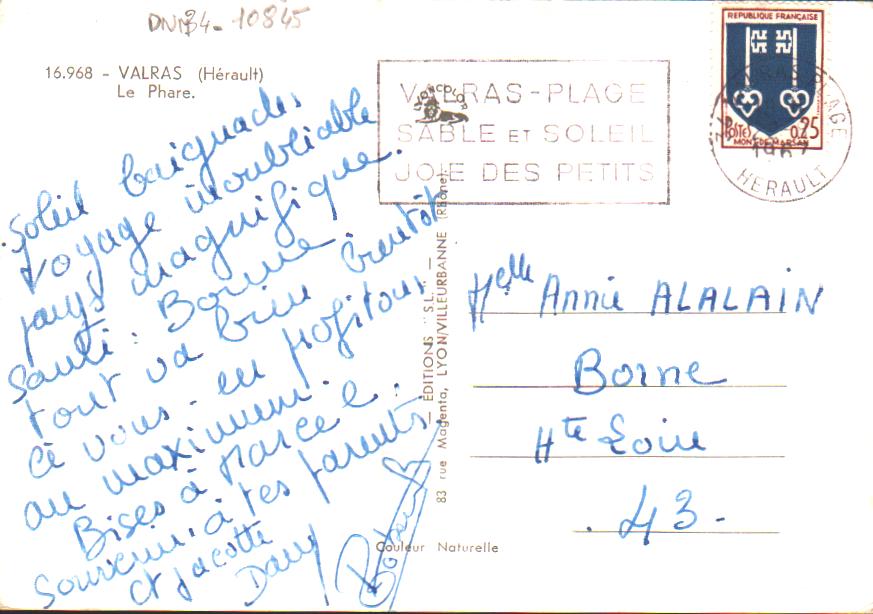 DNB4-10845
16.968 - VALRAS (Hérault)
Le Phare.
Soleil baignades
voyage inoubliable
pays magnifique.
Santé : Bonne.
tout va bien bientôt
à vous. en profitons
au maximum.
Bises à Marcel.
Souvenir à tes parents
et Jacotte
Dany
LYONCOLOR
VALRAS-PLAGE
SABLE ET SOLEIL
JOIE DES PETITS
RÉPUBLIQUE FRANÇAISE
POSTES
0,25
MONT-DE-MARSAN
PLAGE
1967
HERAULT
ÉDITIONS "S.L." —
83 rue Magenta, LYON/VILLEURBANNE (Rhône)
Melle Annie ALALAIN
Borne
Hte Loire
. 43 -
Couleur Naturelle